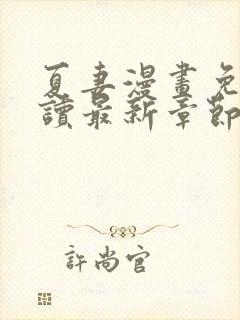 夏妻漫畫免
讀最新章節
許尚官